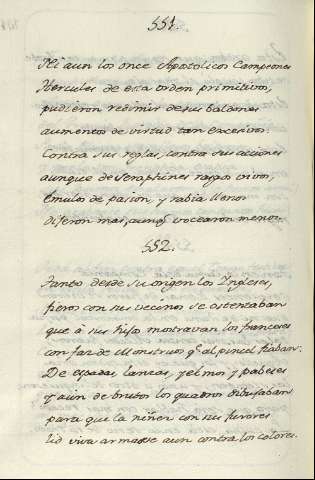 551.
Ni aun los once Apostolicos Campeones
Hercules de esta orden primitivos,
pudieron redimir de sus baldones
aumentos de virtud tan excesivos.
Contra sus reglas, contra sus acciones
aunque de Seraphines rasgos vivos,
emulos de pasion, y rabia llenos
dijeron mas, aunq. vocearon menos.
552.
Tanto desde su origen los Ingleses,
fieros con sus vecinos se ostentaban
que á sus hijos mostravan los franceses
con faz de Monstruos q. al pincel fiaban:
De espadas, lanzas, yelmos y paveses
y aun de brutos los quadros dibujaban
para que la niñez con sus furores
lid viva armase aun contra los colores.